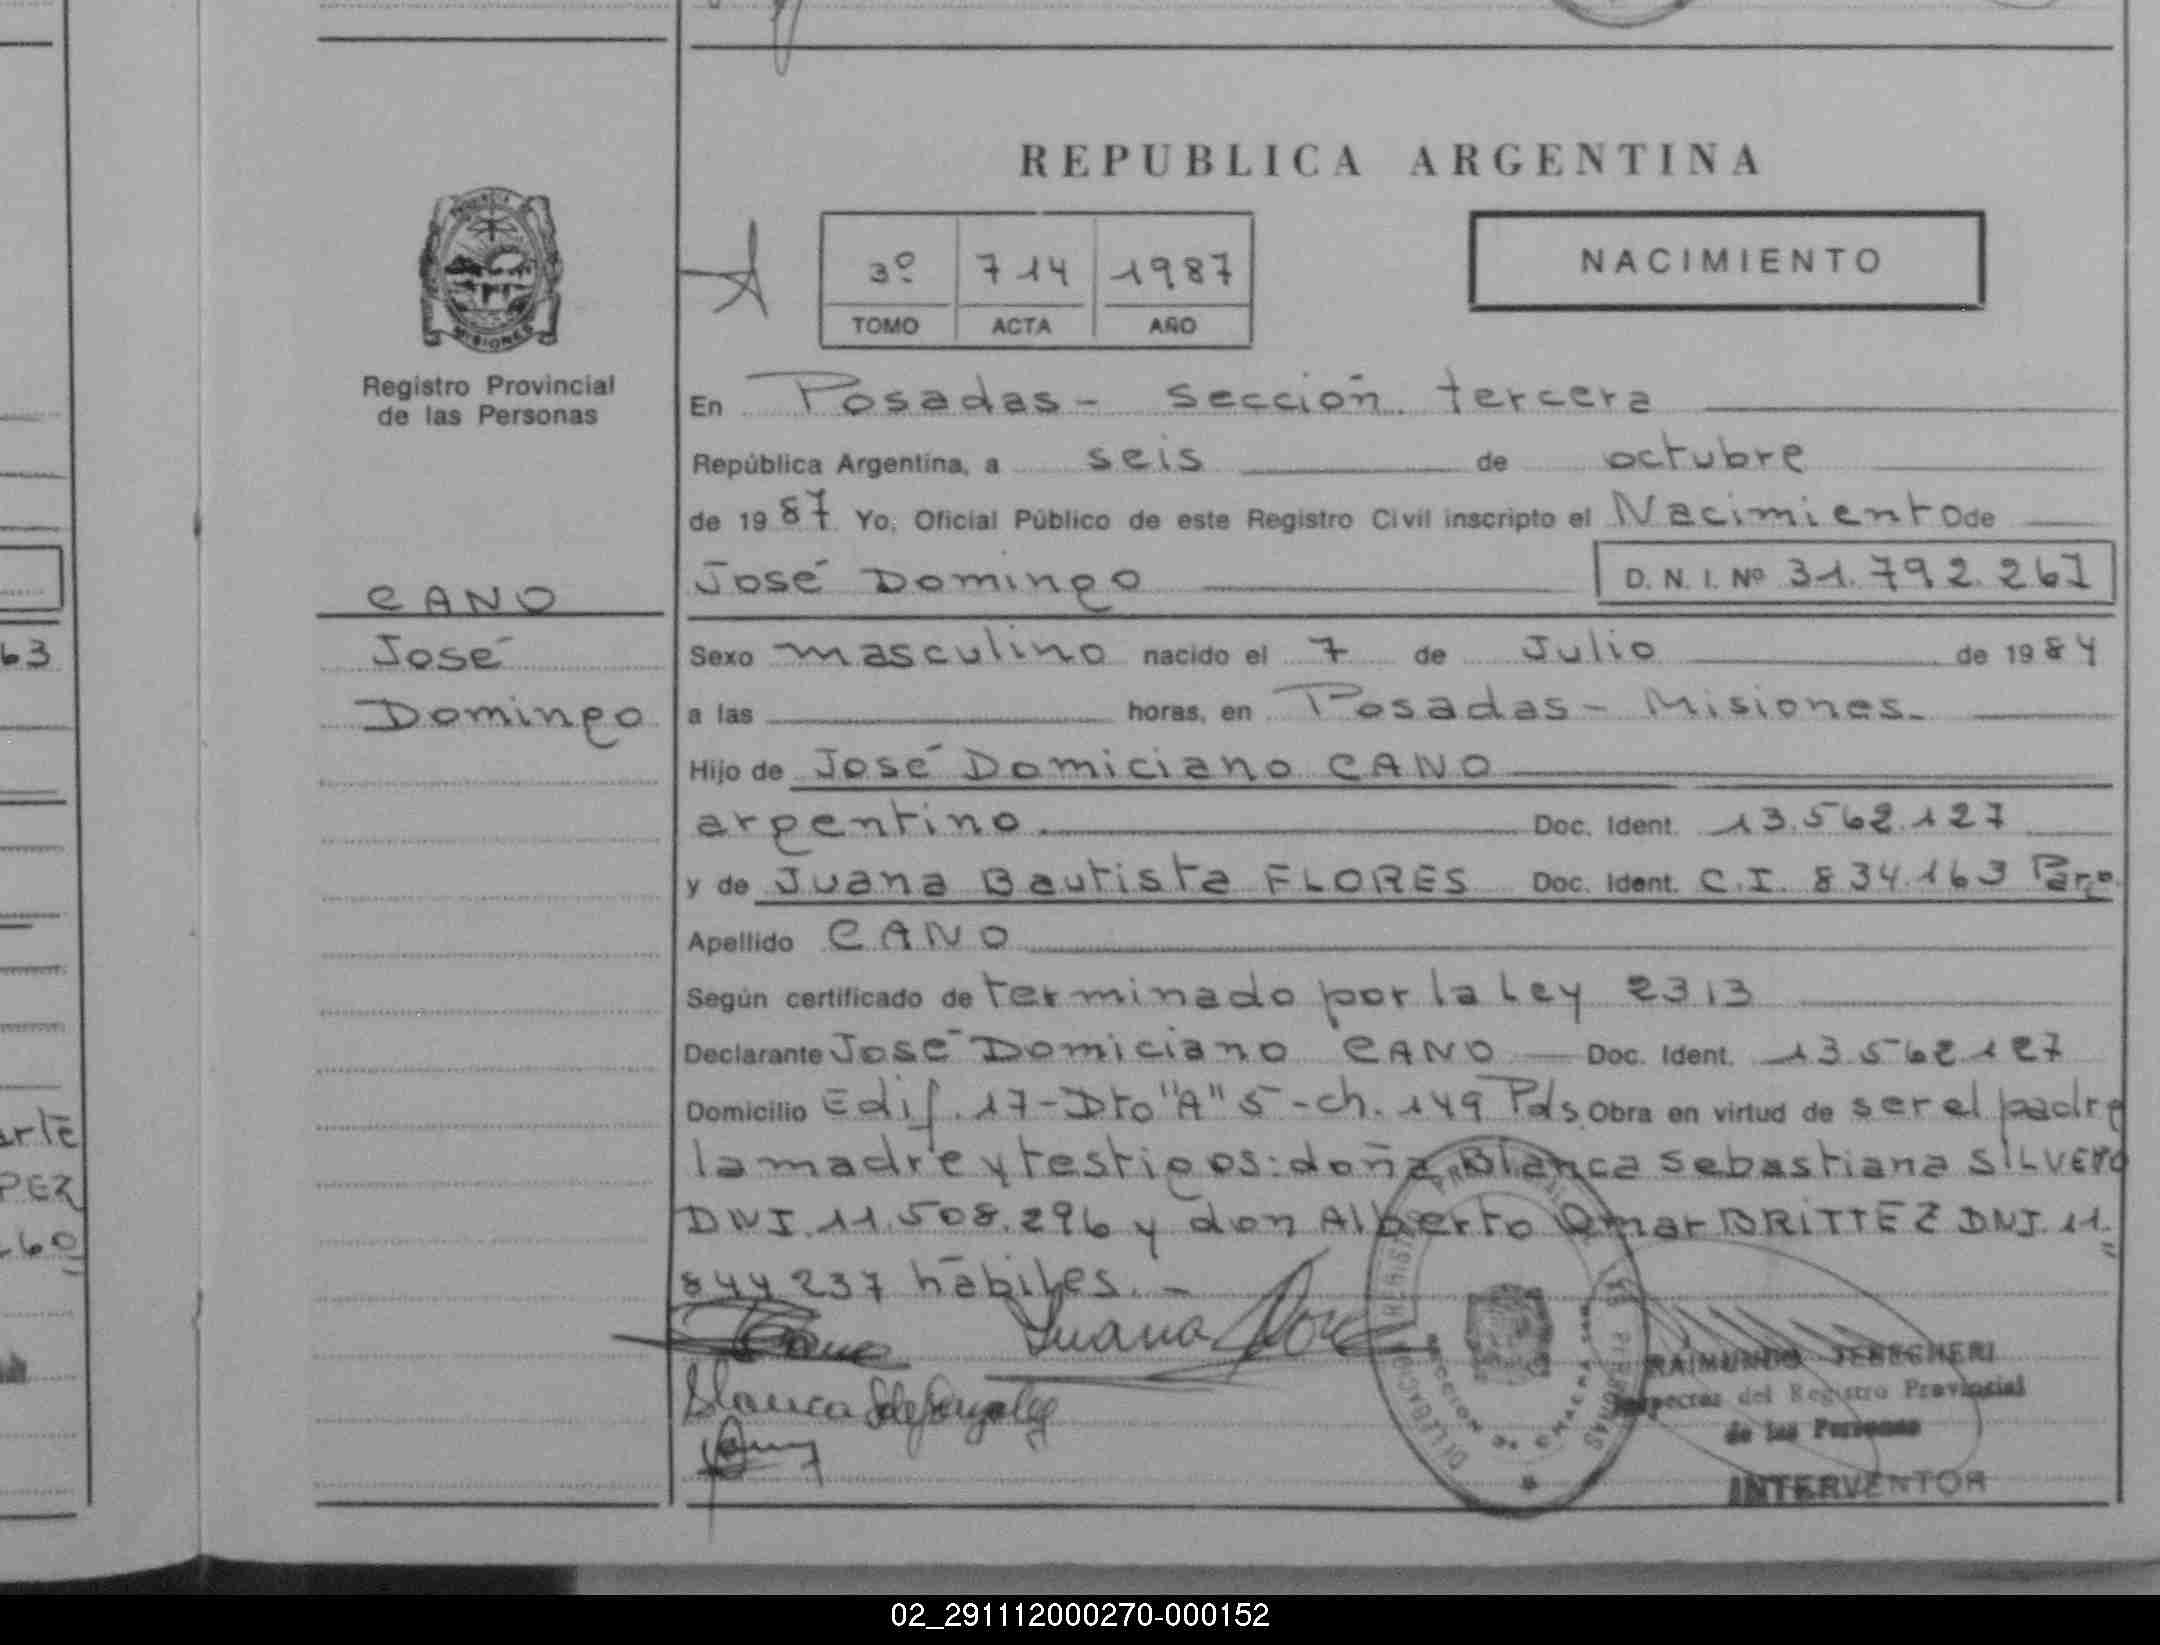 REPUBLICA ARGENTINA
3º 714 1987
TOMO ACTA AÑO
NACIMIENTO
MISIONES
Registro Provincial
de las Personas
CANO
José
Domingo
En Posadas - Sección tercera
República Argentina, a seis de octubre
de 1987 Yo, Oficial Público de este Registro Civil inscripto el Nacimiento de
José Domingo D. N. I. Nº 31.792.267
Sexo masculino nacido el 7 de Julio de 1984
a las horas, en Posadas - Misiones.
Hijo de José Domiciano CANO
argentino Doc. Ident. 13.562.127
y de Juana Bautista FLORES Doc. Ident. C.I. 834.163 Parg.
Apellido CANO
Según certificado de terminado por la Ley 2313
Declarante José Domiciano CANO Doc. Ident. 13.562.127
Domicilio Edif. 17 - Dto "A" 5 - ch. 149 Pds. Obra en virtud de ser el padre
la madre y testigos: doña Blanca Sebastiana SILVERO
DNI. 11.508.296 y don Alberto Omar BRITTEZ DNI. 11.
844.237 hábiles. -
Juana Flores
Blanca S de Gonzalez
RAIMUNDO JEBECHERI
Inspector del Registro Provincial
de las Personas
INTERVENTOR
63
arte
PEZ
60
02_291112000270-000152